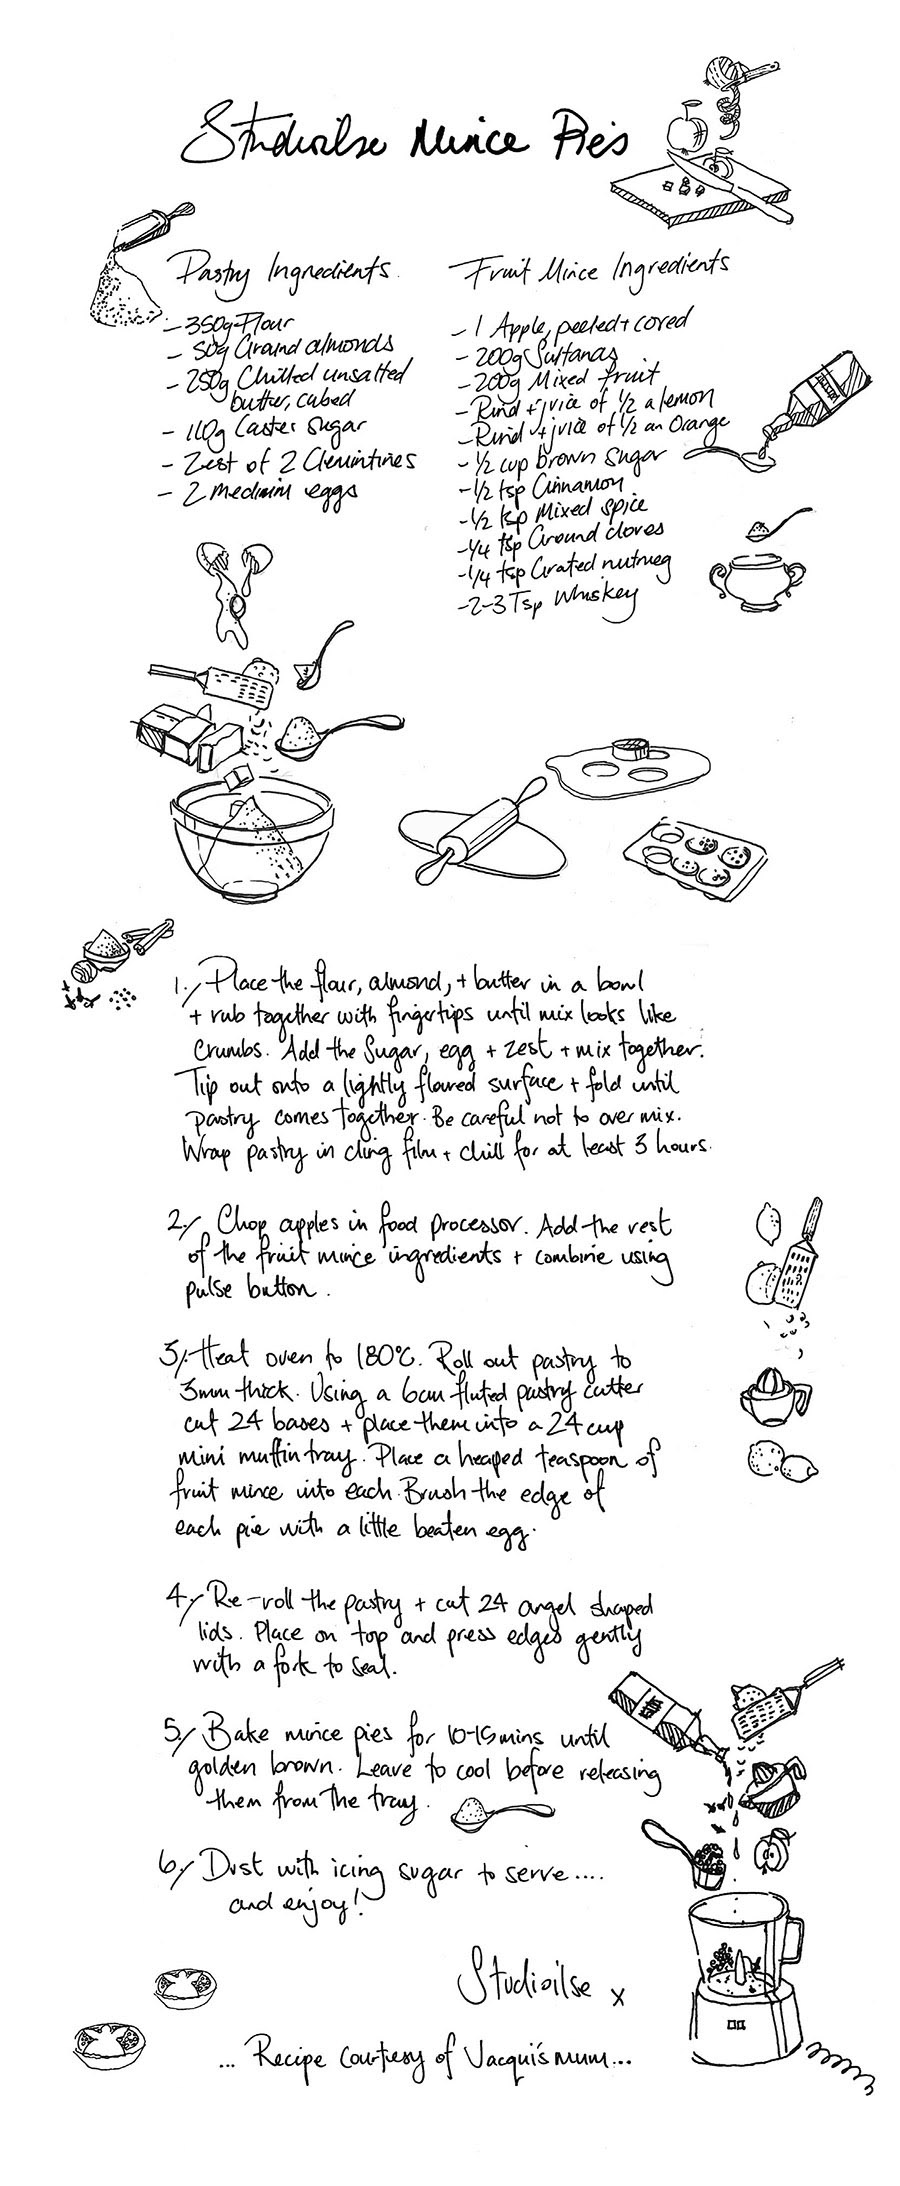 Studioilse Mince Pies
Pastry Ingredients.
- 350g Flour
- 50g Ground almonds
- 250g Chilled unsalted
butter, cubed
- 110g Caster Sugar
- Zest of 2 Clemintines
- 2 medium eggs
Fruit Mince Ingredients
- 1 Apple, peeled + cored
- 200g Sultanas
- 200g Mixed fruit
- Rind + juice of 1/2 a lemon
- Rind + juice of 1/2 an Orange
- 1/2 cup brown Sugar
- 1/2 tsp Cinnamon
- 1/2 tsp Mixed spice
- 1/4 tsp Ground cloves
- 1/4 tsp Grated nutmeg
- 2-3 Tsp Whiskey
1/ Place the flour, almond, + butter in a bowl
+ rub together with fingertips until mix looks like
crumbs. Add the Sugar, egg + zest + mix together.
Tip out onto a lightly floured surface + fold until
pastry comes together. Be careful not to over mix.
Wrap pastry in cling film + chill for at least 3 hours.
2/ Chop apples in food processor. Add the rest
of the fruit mince ingredients + combine using
pulse button.
3/ Heat oven to 180°C. Roll out pastry to
3mm thick. Using a 6cm fluted pastry cutter
cut 24 bases + place them into a 24 cup
mini muffin tray. Place a heaped teaspoon of
fruit mince into each. Brush the edge of
each pie with a little beaten egg.
4/ Re-roll the pastry + cut 24 angel shaped
lids. Place on top and press edges gently
with a fork to seal.
5/ Bake mince pies for 10-15mins until
golden brown. Leave to cool before releasing
them from the tray.
6/ Dust with icing sugar to serve....
and enjoy!
Studioilse x
... Recipe Courtesy of Jacqui's mum...